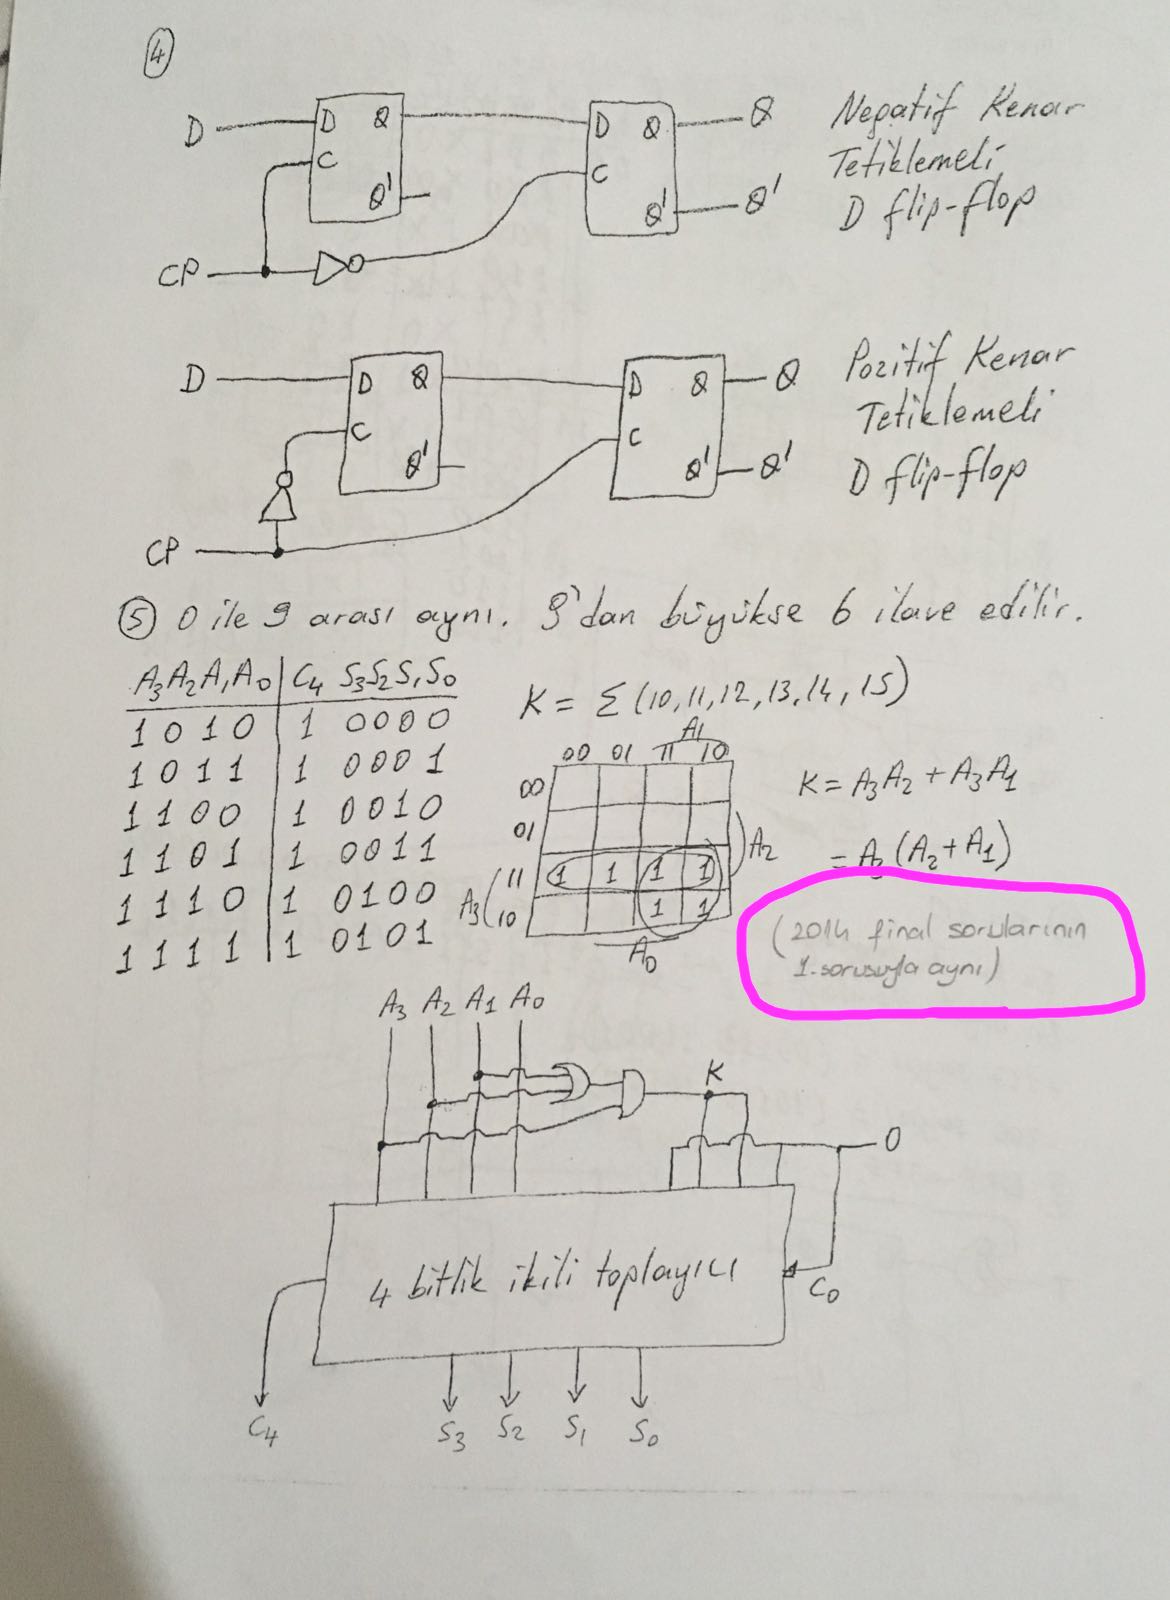 4
D D Q D Q Q Negatif Kenar
C C Tetiklemeli
Q' Q' Q' D flip-flop
CP
D D Q D Q Q Pozitif Kenar
C C Tetiklemeli
Q' Q' Q' D flip-flop
CP
5 0 ile 9 arası aynı. 9'dan büyükse 6 ilave edilir.
A3 A2 A1 A0 C4 S3 S2 S1 S0
1 0 1 0 1 0 0 0 0
1 0 1 1 1 0 0 0 1
1 1 0 0 1 0 0 1 0
1 1 0 1 1 0 0 1 1
1 1 1 0 1 0 1 0 0
1 1 1 1 1 0 1 0 1
K = Σ (10, 11, 12, 13, 14, 15)
A1
00 01 11 10
00
01
11 1 1 1 1
10 1 1
A2
A3
A0
K = A3 A2 + A3 A1
= A3 (A2 + A1)
(2014 final sorularının
1. sorusuyla aynı)
A3 A2 A1 A0
K
0
4 bitlik ikili toplayıcı
C0
C4 S3 S2 S1 S0